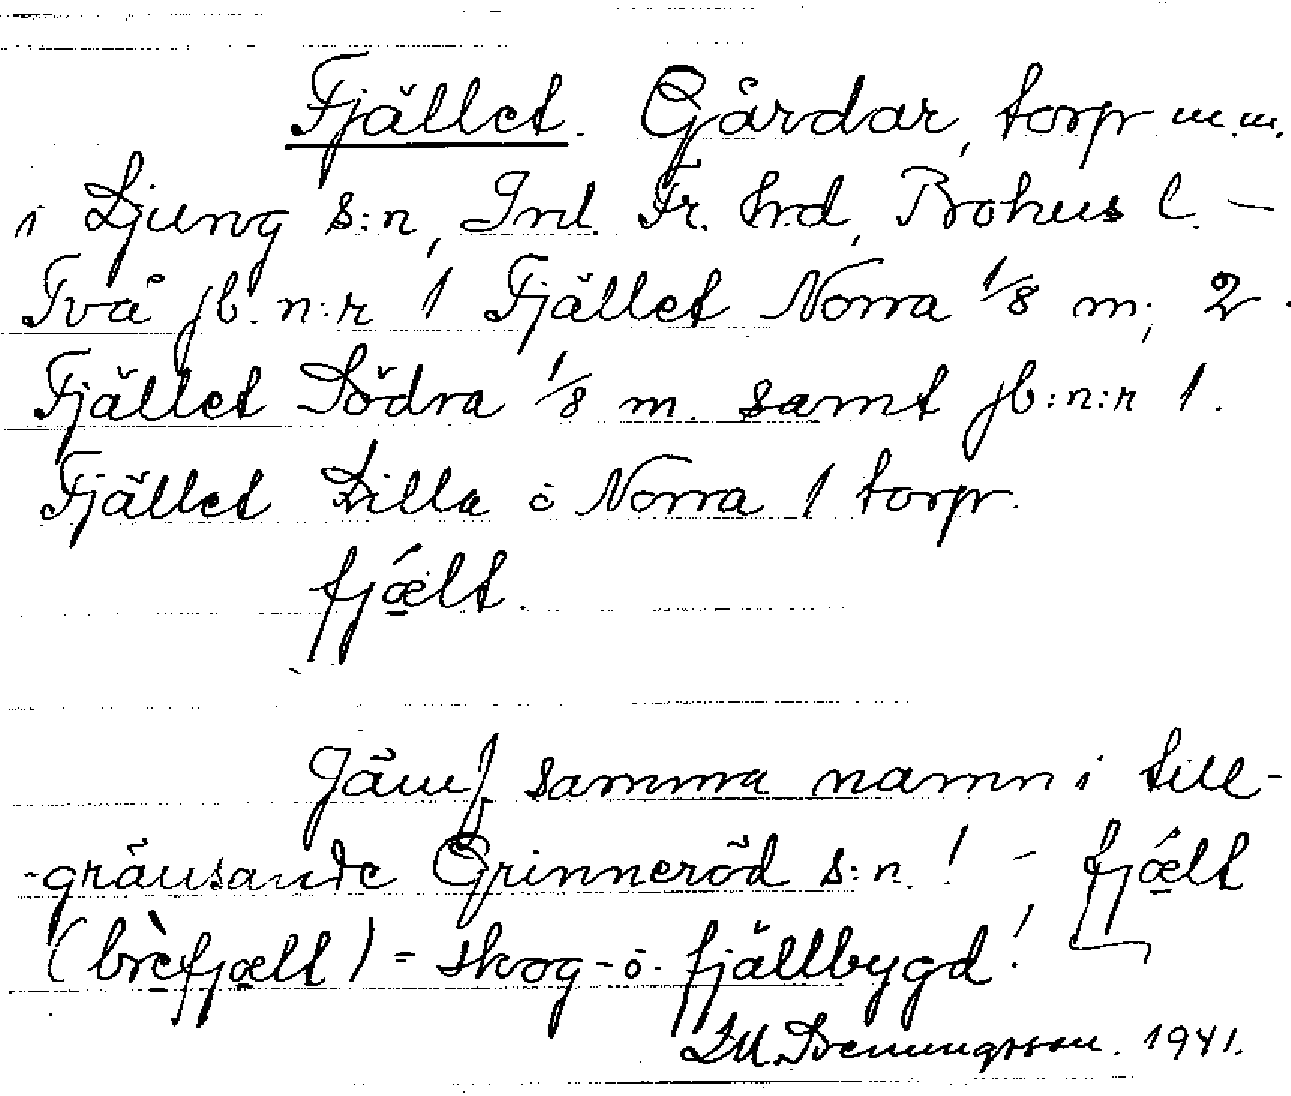 Fjället. Gårdar, torp m.m.
i Ljung s:n, Inl. Fr. hrd, Bohus l. –
Två jb. n:r 1 Fjället Norra 1/8 m; 2
Fjället Södra 1/8 m. samt jb:n:r 1.
Fjället Lilla o Norra 1 torp.
fjǽlt.
Jämf samma namn i till-
-gränsande Grinneröd s:n! – fjǽlt
(brèfjælt) = skog- o. fjällbygd!
1941.